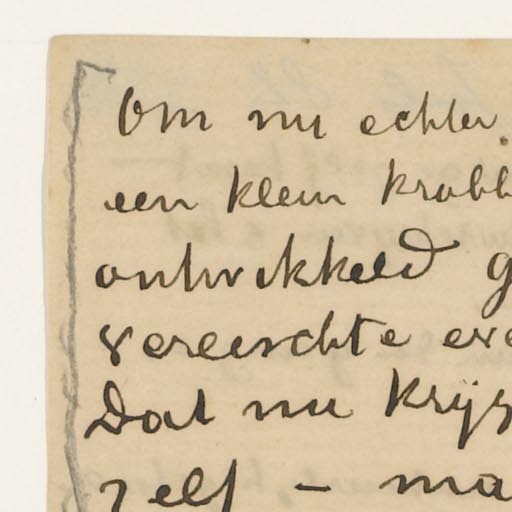 Om nu echter
een klein krabb
ontwikkeld g
vereischte exe
Dat nu krijg
zelf – ma